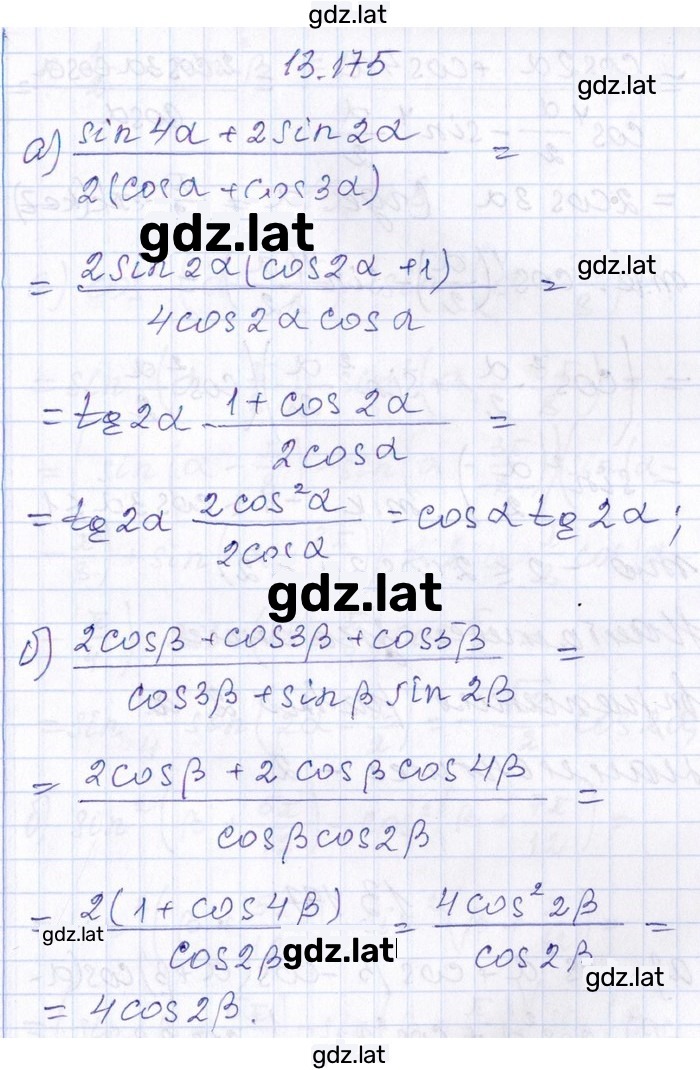 gdz.lat
13.175
gdz.lat
а) (sin4α + 2sin2α) / (2(cosα + cos3α)) =
gdz.lat
= (2sin2α(cos2α + 1)) / (4cos2αcosα) =
gdz.lat
= tg2α · (1 + cos2α) / (2cosα) =
= tg2α (2cos²α) / (2cosα) = cosα tg2α;
gdz.lat
б) (2cosβ + cos3β + cos5β) / (cos3β + sinβ sin2β) =
= (2cosβ + 2cosβcos4β) / (cosβcos2β) =
= (2(1 + cos4β)) / (cos2β) = (4cos²2β) / (cos2β) =
gdz.lat
gdz.lat
gdz.lat
= 4cos2β.
gdz.lat